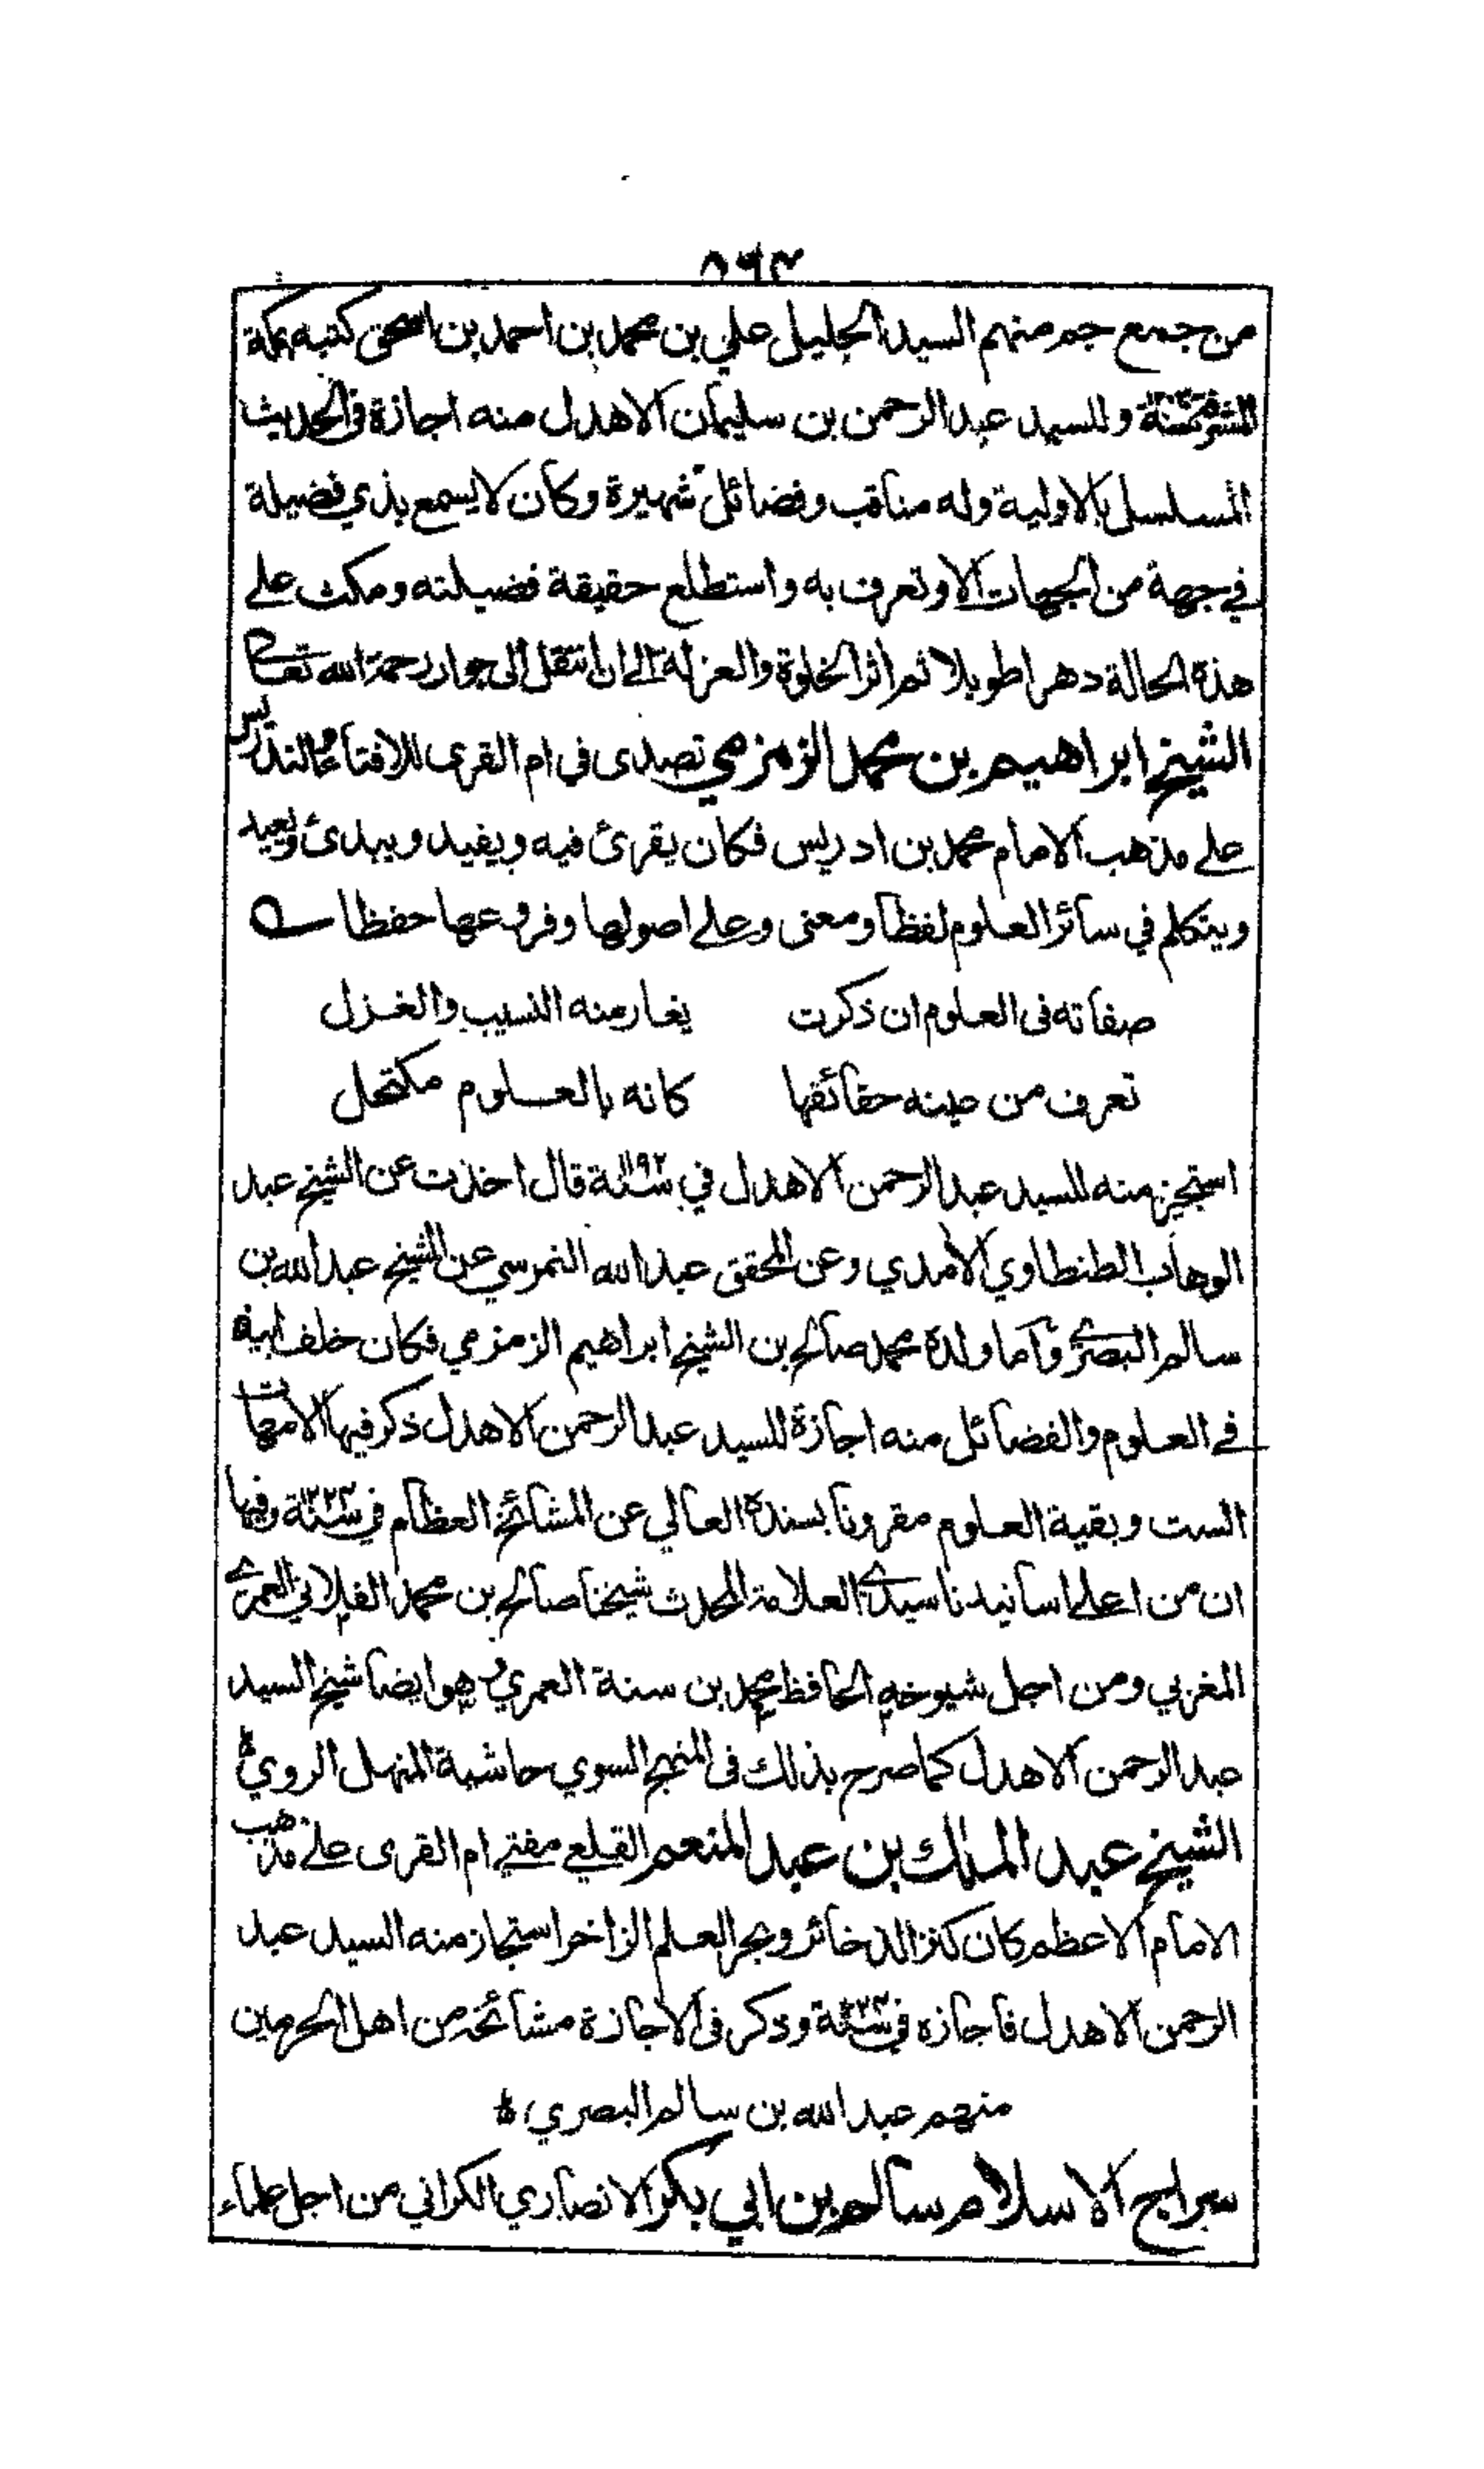 ٨٦٣
من جمع جم منهم السيد الجليل علي بن محمد بن احمد بن اسحق كتبه بمكة
المشرفة وللسيد عبد الرحمن بن سليمان الاهدل منه اجازة في الحديث
المسلسل بالاولية وله مناقب وفضائل شهيرة وكان لا يسمع بذي فضيلة
في جهة من الجهات الا وتعرف به واستطلع حقيقة فضيلته ومكث على
هذه الحالة دهرا طويلا ثم اثر الخلوة والعزلة الى ان انتقل الى جوار رحمة الله تعالى
الشيخ ابراهيم بن محمد الزمزمي تصدى في ام القرى للافتاء والتدريس
على مذهب الامام محمد بن ادريس فكان يقرئ فيه ويفيد ويبدئ ويعيد
ويتكلم في سائر العلوم لفظا ومعنى وعلى اصولها وفروعها حفظا
صفاته في العلوم ان ذكرت يغار منه النسيب والغزل
تعرف من عينه حقائقها كانه بالعلوم مكتحل
استجيز منه للسيد عبد الرحمن الاهدل في سنة ١١٩٢ قال اخذت عن الشيخ عبد
الوهاب الطنطاوي الاحمدي وعن المحقق عبد الله النمرسي عن الشيخ عبد الله بن
سالم البصري واما ولده محمد صالح بن الشيخ ابراهيم الزمزمي فكان خلف ابيه
في العلوم والفضائل منه اجازة للسيد عبد الرحمن الاهدل ذكر فيها الامهات
الست وبقية العلوم مقرونا بسنده العالي عن المشائخ العظام في سنة وفيها
ان من اعلى اسانيدنا سيدي العلامة المحدث شيخنا صالح بن محمد الفلاني العمري
المغربي ومن اجل شيوخه الحافظ محمد بن سنة العمري وهو ايضا شيخ السيد
عبد الرحمن الاهدل كما صرح بذلك في المنهج السوي حاشية المنهل الروي
الشيخ عبد الملك بن عبد المنعم القلعي مفتي ام القرى على مذهب
الامام الاعظم كان كنز الذخائر وبحر العلم الزاخر استجاز منه السيد عبد
الرحمن الاهدل فاجازه في سنة وذكر في الاجازة مشائخه من اهل الحرمين
منهم عبد الله بن سالم البصري
سراج الاسلام سالم بن ابي بكر الانصاري الكراني من اجل علماء